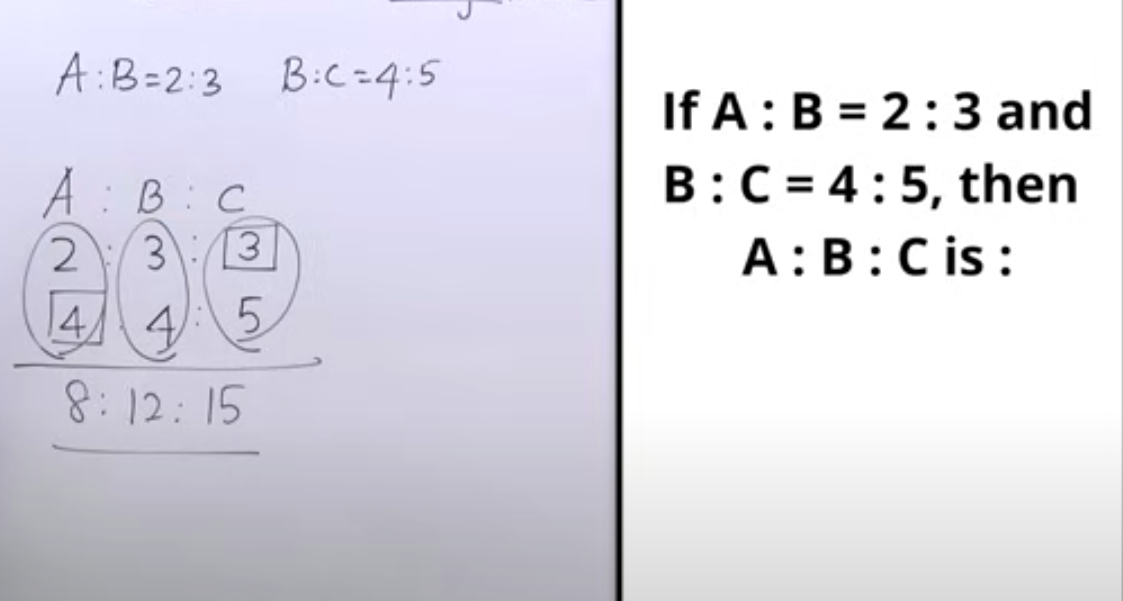 A:B=2:3 B:C=4:5
A : B : C
2 : 3 : 3
4 : 4 : 5
8: 12: 15
If A : B = 2 : 3 and
B : C = 4 : 5, then
A : B : C is :